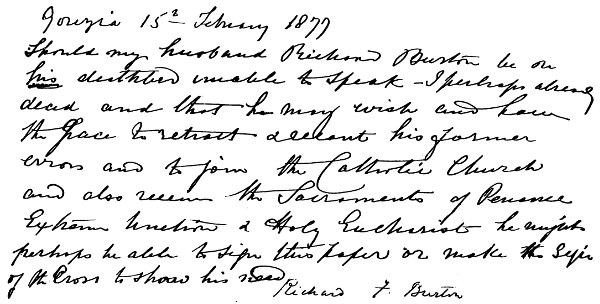 Gorizia 15th February 1877
Should my husband Richard Burton be on
his deathbed unable to speak - I perhaps already
dead and that he may wish and have
the grace to retract & recant his former
errors and to join the Catholic Church
and also receive the Sacraments of Penance
Extreme Unction & Holy Eucharist he might
perhaps be able to sign this paper or make the sign
of the Cross to show his need
Richard F. Burton